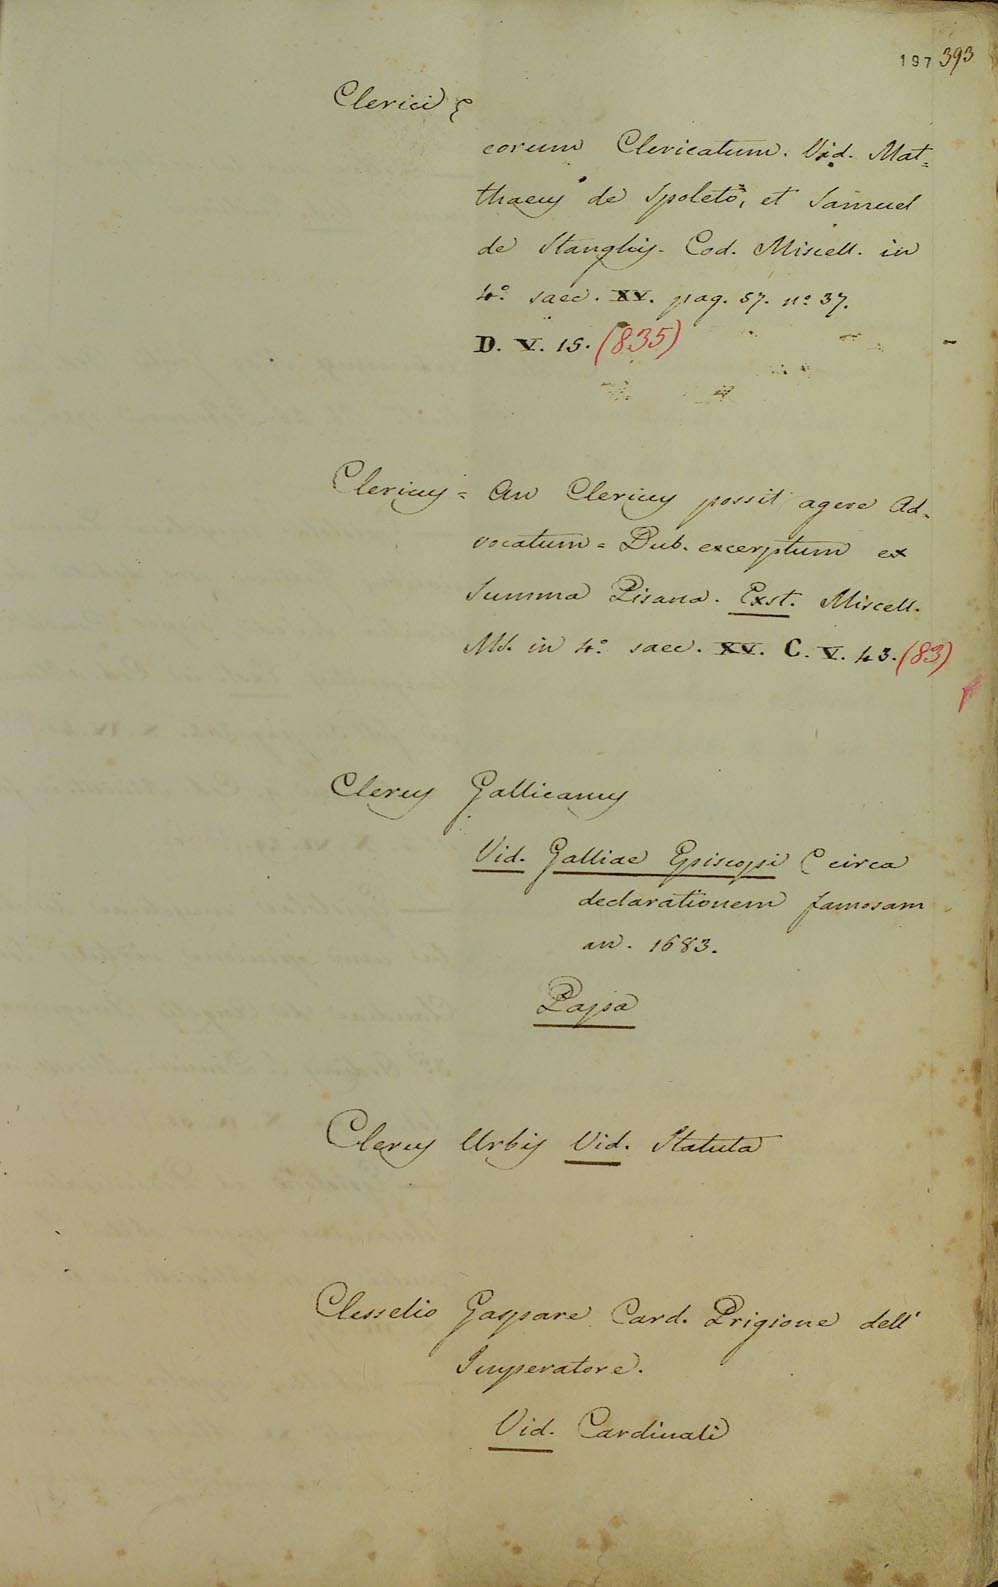 197 393
Clerici &
eorum Clericatum. Vid. Mat=
thaeus de Spoleto, et Samuel
de Stanghis. Cod. Miscell. in
4.° saec. XV. pag. 57. n.° 37.
D. V. 15. (835)
Clericus = An Clericus possit agere Ad=
vocatum = Dub. excerptum ex
Summa Pisana. Exst. Miscell.
MS. in 4.° saec. XV. C. V. 43. (83)
Clerus Gallicanus
Vid. Galliae Episcopi C circa
declarationem famosam
an. 1683.
Papa
Clerus Urbis Vid. Statuta
Clesselio Gaspare Card. Prigione dell'
Imperatore.
Vid. Cardinali